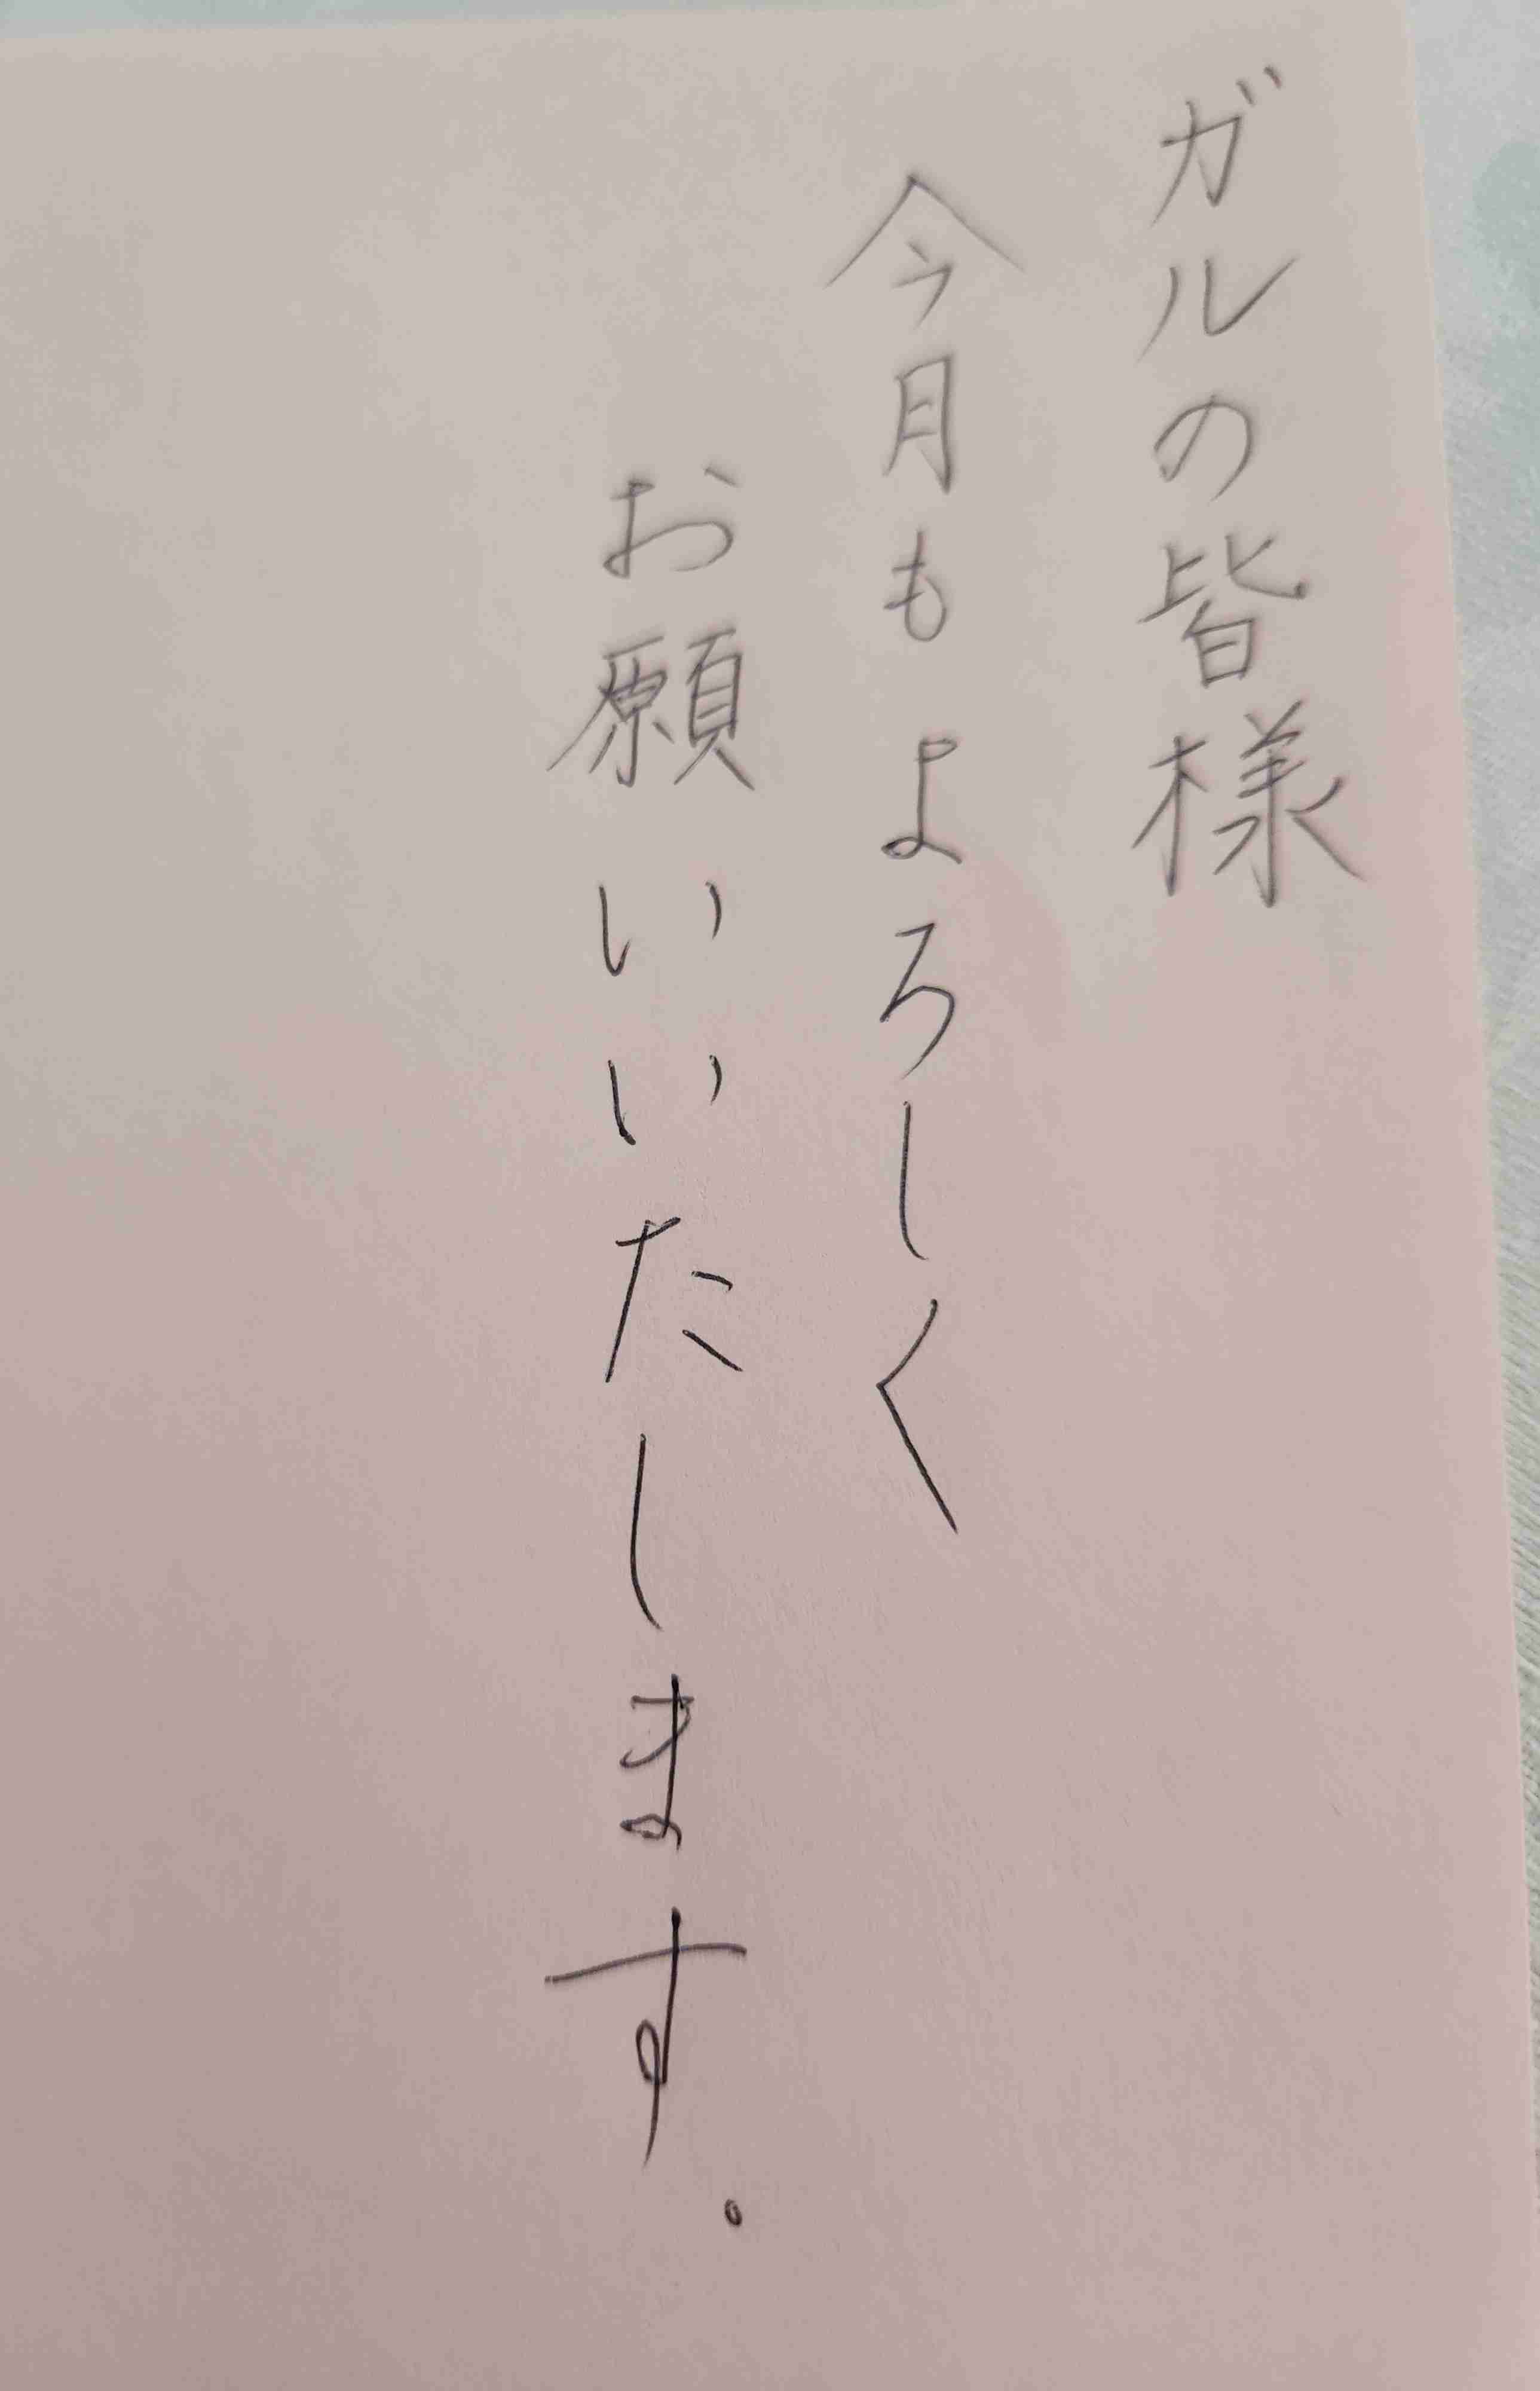 ガルの皆様
今月もよろしく
お願いいたします。